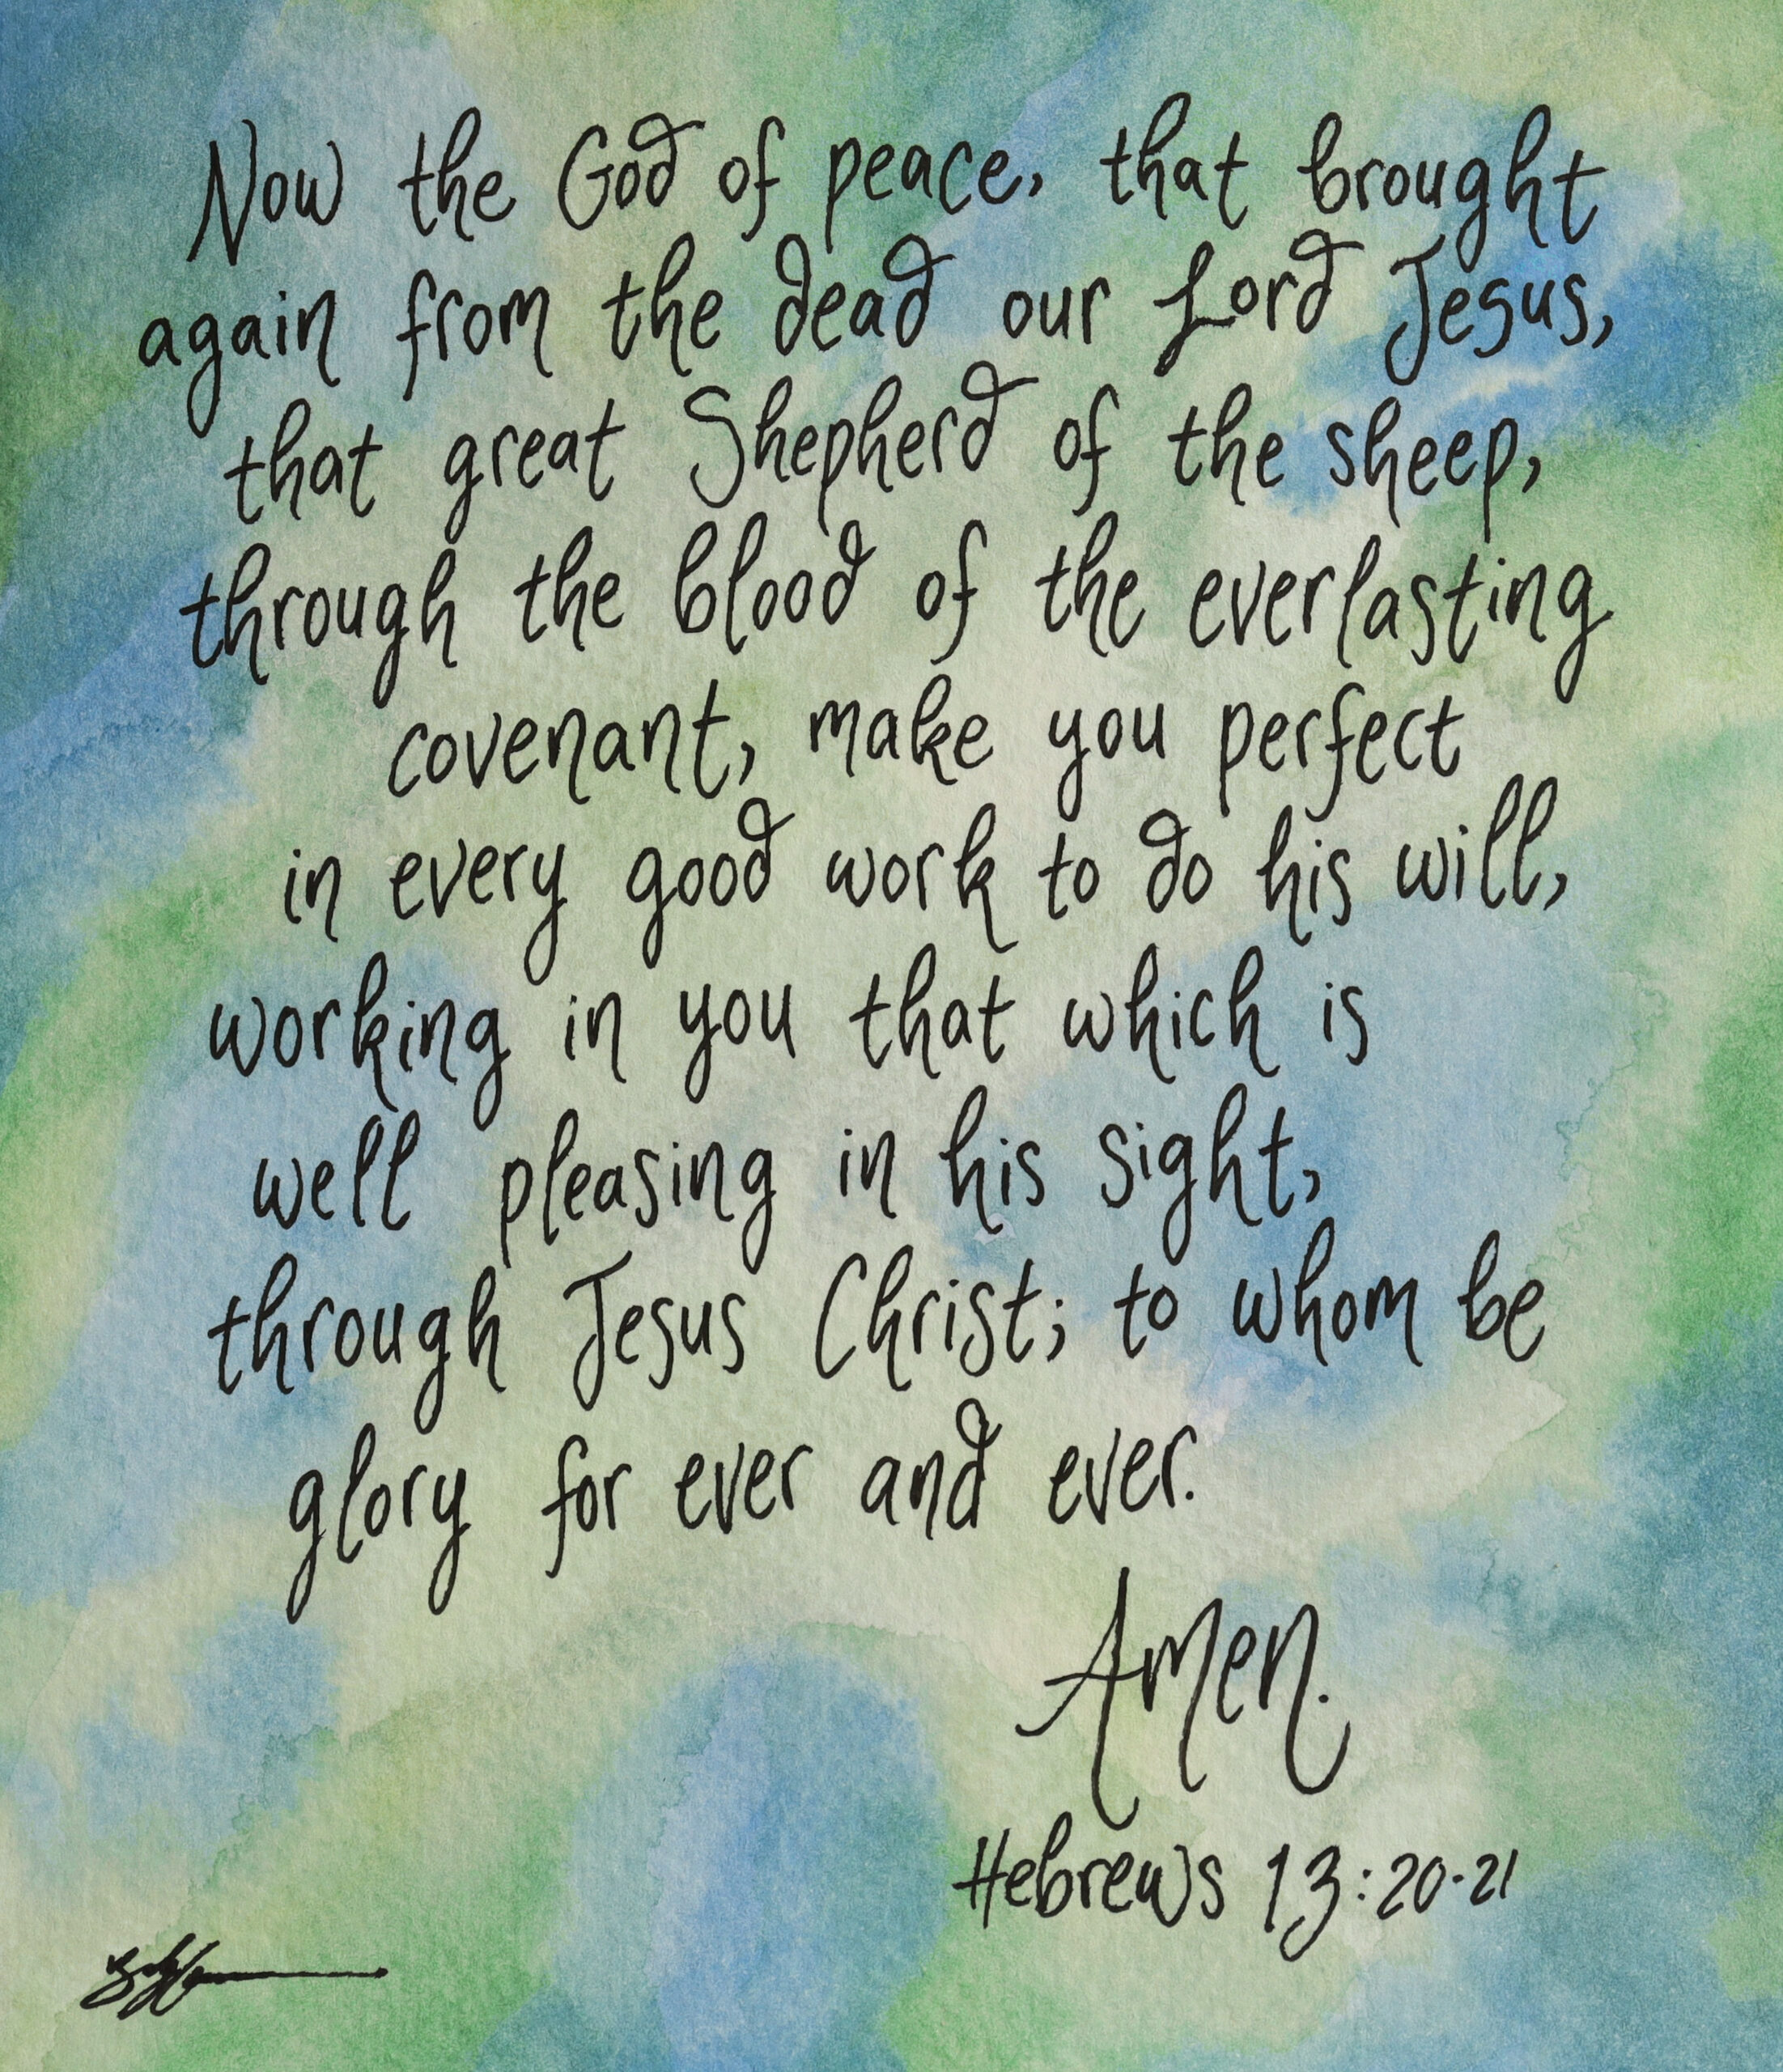 Now the God of peace, that brought
again from the dead our Lord Jesus,
that great Shepherd of the sheep,
through the blood of the everlasting
covenant, make you perfect
in every good work to do his will,
working in you that which is
well pleasing in his sight,
through Jesus Christ; to whom be
glory for ever and ever.
Amen.
Hebrews 13:20-21